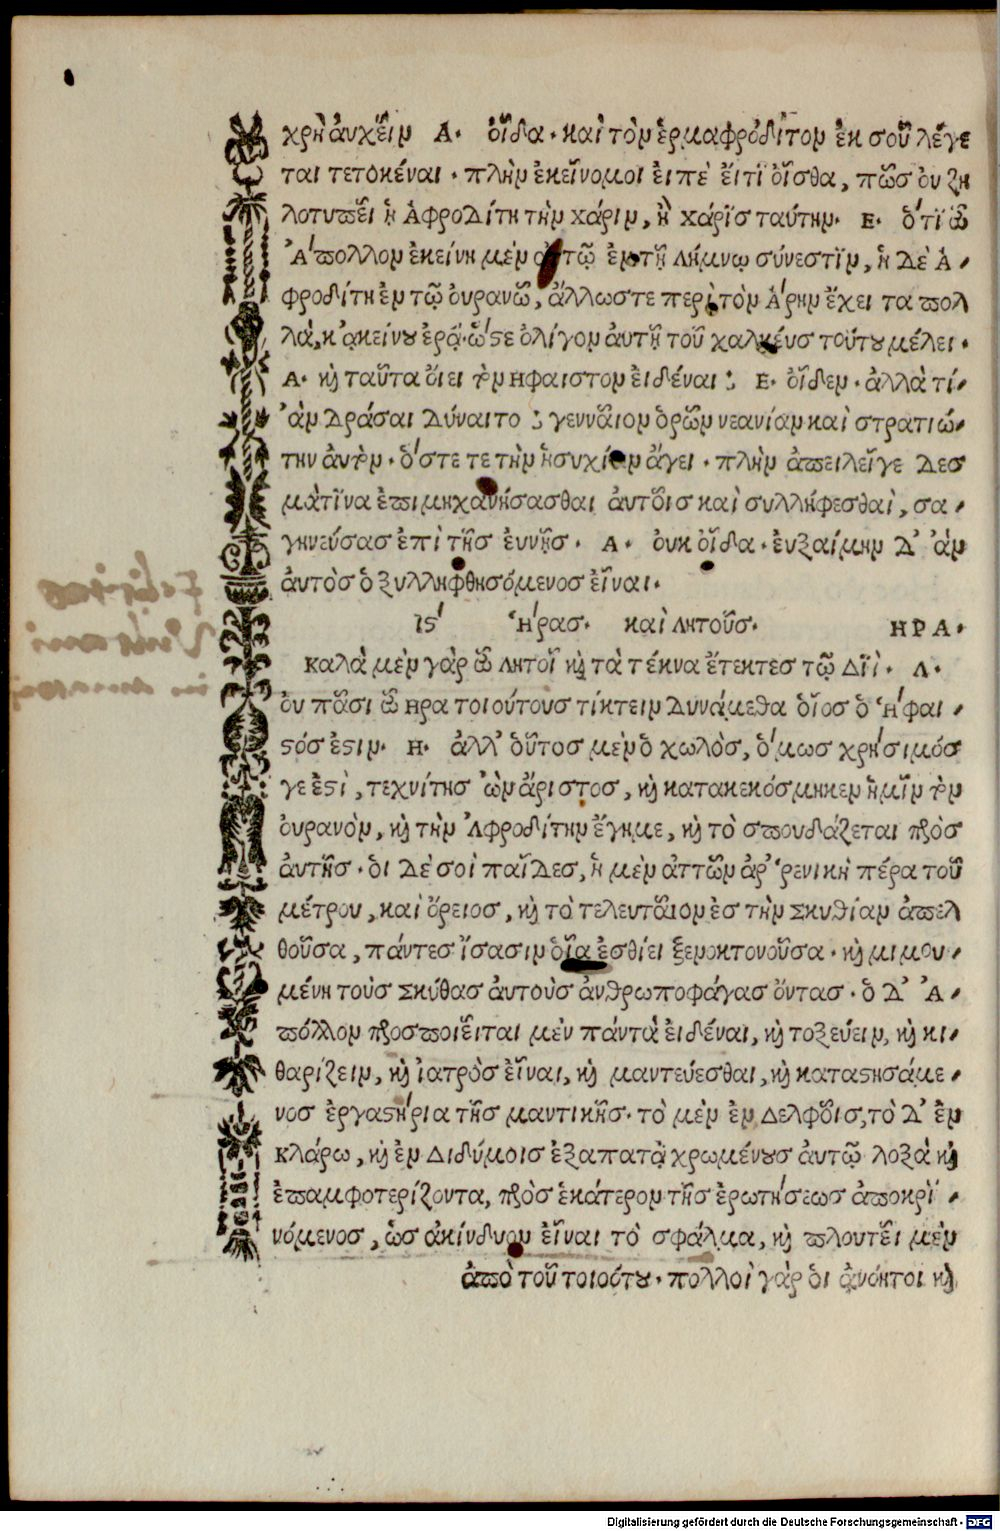 χρὴ ἀυχεῖν Α· ὁῖδα · καὶ τὸν ἑρμαφρόδιτον ἐκ σοῦ λέγε
ται τετοκέναι · πλὴν ἐκεῖνομοι ἐιπὲ ἔιτι ὁῖσθα, πῶσ ὀυ ζη
λοτυπεῖ ἡ Ἀφροδίτη τὴν χάριν, ἢ χάρισ ταύτην· Ε· ὅτι ὦ
Ἄπολλον ἐκείνη μὲν ἀυτῷ ἐν τῇ λήμνῳ σύνεστιν, ἡ δὲ Ἀ-
φροδίτη ἐν τῷ ὀυρανῶ, ἄλλωστε περὶ τὸν Ἄρην ἔχει τα πολ
λὰ, κ'ἀκείνου ἐρᾷ· ὥστε ὀλίγον ἀυτῇ τοῦ χαλκέωσ τούτου μέλει·
Α· καὶ ταῦτα ὄιει τὸν ηφαιστον ἐιδέναι; Ε· ὁῖδεν · ἀλλὰ τί-
ἂν δράσαι δύναιτο ; γενναῖον ὁρῶν νεανίαν καὶ στρατιώ-
την ἀυτὸν · ὅστε τε τὴν ἡσυχίαν ἄγει · πλὴν ἀπειλεῖγε δεσ
μάτινα ἐπιμηχανήσασθαι ἀυτοῖσ καὶ συλλήφεσθαὶ, σα-
γηνεύσασ ἐπὶ τῆσ ἐυνῆσ · Α· ὀυκ ὁῖδα · ἐυξαίμην δ' ἂν
ἀυτὸσ ὁ ξυλληφθησόμενοσ εἶναι·
ις' Ἥρασ· καὶ λητοῦσ· ΗΡΑ·
καλὰ μὲν γὰρ ὦ λητοῖ καὶ τὰ τέκνα ἔτεκτεσ τῷ διῒ· Λ·
ὀυ πᾶσι ὦ ηρα τοιούτουσ τίκτειν δυνάμεθα ὁῖοσ ὁ Ἥφαι-
στόσ ἐστιν· Η· ἀλλ' ὁῦτοσ μὲν ὁ χωλὸσ, ὅμωσ χρήσιμόσ
γε ἐστὶ, τεχνίτησ ὢν ἄριστοσ, καὶ κατακεκόσμηκεν ἡμῖν τὸν
ὀυρανὸν, καὶ τὴν Ἀφροδίτην ἔγημε, καὶ τὸ σπουδάζεται πρὸσ
ἀυτῆσ · ὁι δὲ σοὶ παῖδεσ, ἡ μὲν ἀττῶν ἀῤῥενικὴ πέρα τοῦ
μέτρου, καὶ ὄρειοσ, καὶ τὸ τελευταῖον ἐσ τὴν σκυθίαν ἀπελ
θοῦσα, πάντεσ ἴσασιν ὁῖα ἐσθίει ξενοκτονοῦσα · καὶ μιμου-
μένη τοὺσ σκύθασ ἀυτοὺσ ἀνθρωποφάγασ ὄντασ · ὁ δ' Ἀ-
πόλλον προσποιεῖται μὲν πάντὰ ἐιδέναι, καὶ τοξεύειν, καὶ κι-
θαρίζειν, καὶ ἰατρὸσ εἶναι, καὶ μαντεύεσθαι, καὶ καταστησάμε-
νοσ ἐργαστήρια τῆσ μαντικῆσ · τὸ μὲν ἐν δελφοῖσ, τὸ δ' ἐν
κλάρω, καὶ ἐν διδύμοισ ἐξαπατᾷ χρωμένουσ ἀυτῷ λοξὰ καὶ
ἐπαμφοτερίζοντα, πρὸσ ἑκάτερον τῆσ ἐρωτήσεωσ ἀποκρὶ-
νόμενοσ, ὡσ ἀκίνδυνον εἶναι τὸ σφάλμα, καὶ πλουτεῖ μὲν
ἀπὸ τοῦ τοιούτου · πολλοὶ γὰρ ὁι ἀνόητοι καὶ
Digitalisierung gefördert durch die Deutsche Forschungsgemeinschaft - DFG